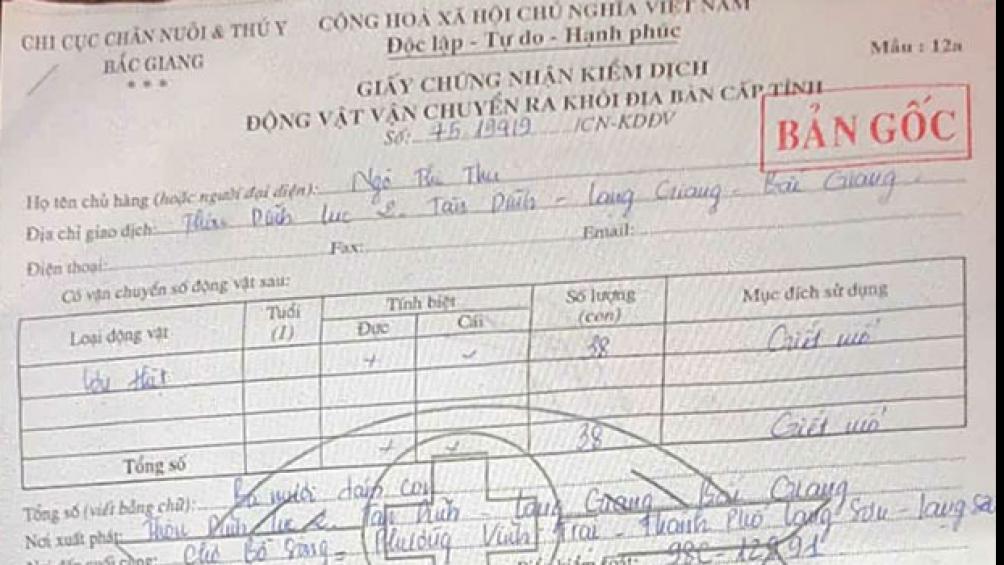 CHI CỤC CHĂN NUÔI & THÚ Y
BẮC GIANG
* * *
CỘNG HOÀ XÃ HỘI CHỦ NGHĨA VIỆT NAM
Độc lập - Tự do - Hạnh phúc
Mẫu : 12a
GIẤY CHỨNG NHẬN KIỂM DỊCH
ĐỘNG VẬT VẬN CHUYỂN RA KHỎI ĐỊA BÀN CẤP TỈNH
Số: 45.19919 /CN-KDĐV
BẢN GỐC
Họ tên chủ hàng (hoặc người đại diện): Ngô Thu
Địa chỉ giao dịch: Thôn Dĩnh Lục 2 - Tân Dĩnh - Lạng Giang - Bắc Giang
Điện thoại: Fax: Email:
Có vận chuyển số động vật sau:
Loại động vật Tuổi (1) Tính biệt Số lượng (con) Mục đích sử dụng
Đực Cái
Lợn thịt + 38 Giết mổ
Tổng số + 38 Giết mổ
Tổng số (viết bằng chữ): Ba mươi tám con
Nơi xuất phát: Thôn Dĩnh Lục 2 - Tân Dĩnh - Lạng Giang - Bắc Giang
Nơi đến cuối cùng: Chợ Bờ Sông - Phường Vĩnh Trại - Thành Phố Lạng Sơn - Lạng Sơn
98C-12891